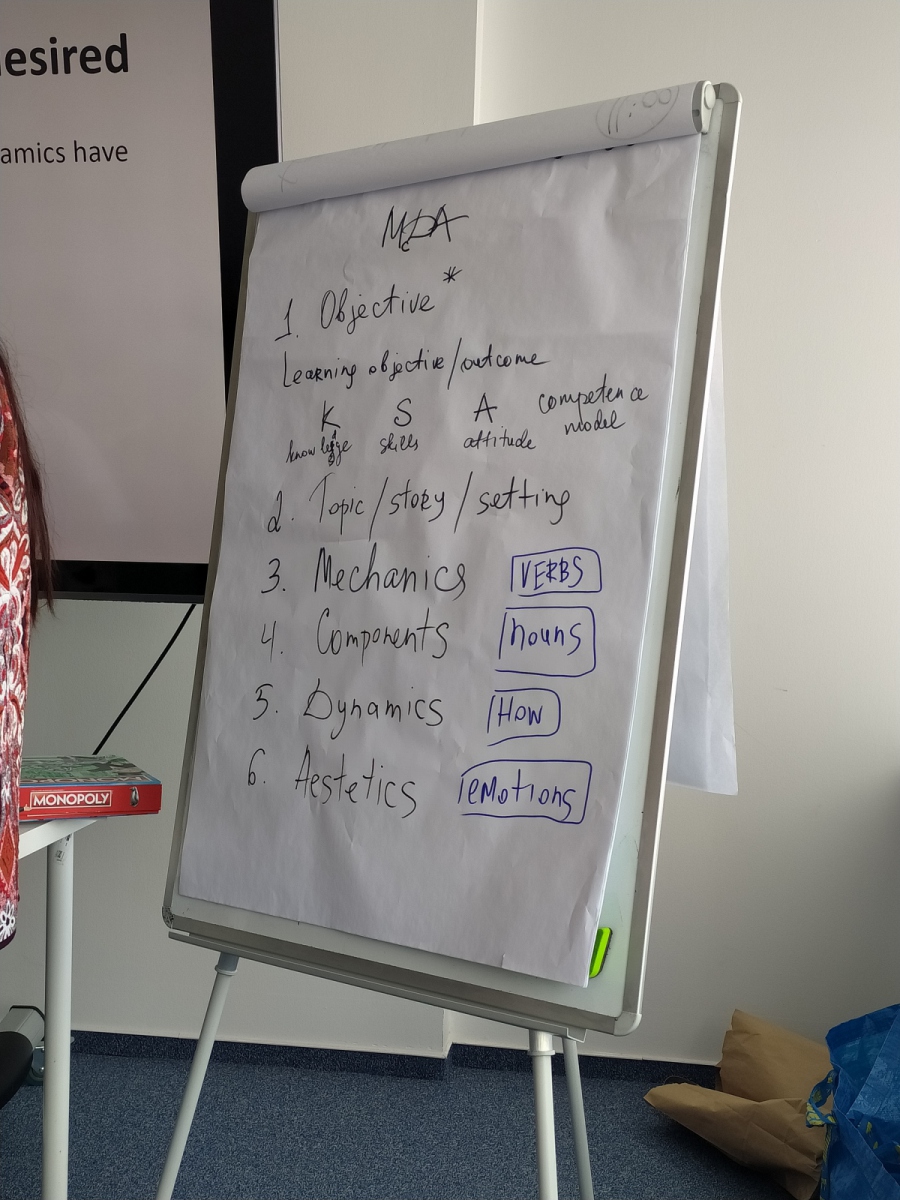 esired
amics have
McDA
1. Objective*
Learning objective/outcome
K S A competence model
knowledge skills attitude
2. Topic/story/setting
3. Mechanics VERBS
4. Components nouns
5. Dynamics How
6. Aestetics emotions
MONOPOLY